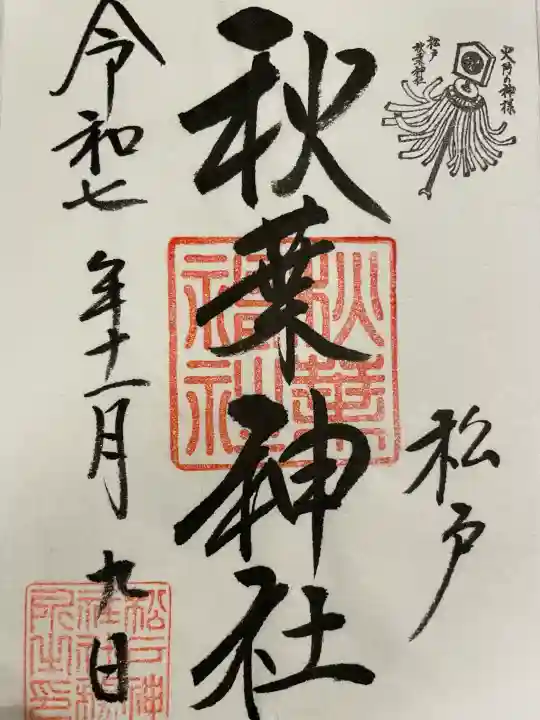 火防の神様
松戸
秋葉神社
松戸
秋葉神社
秋葉
神社
令和七年十一月九日
松戸神
社社務
所之印